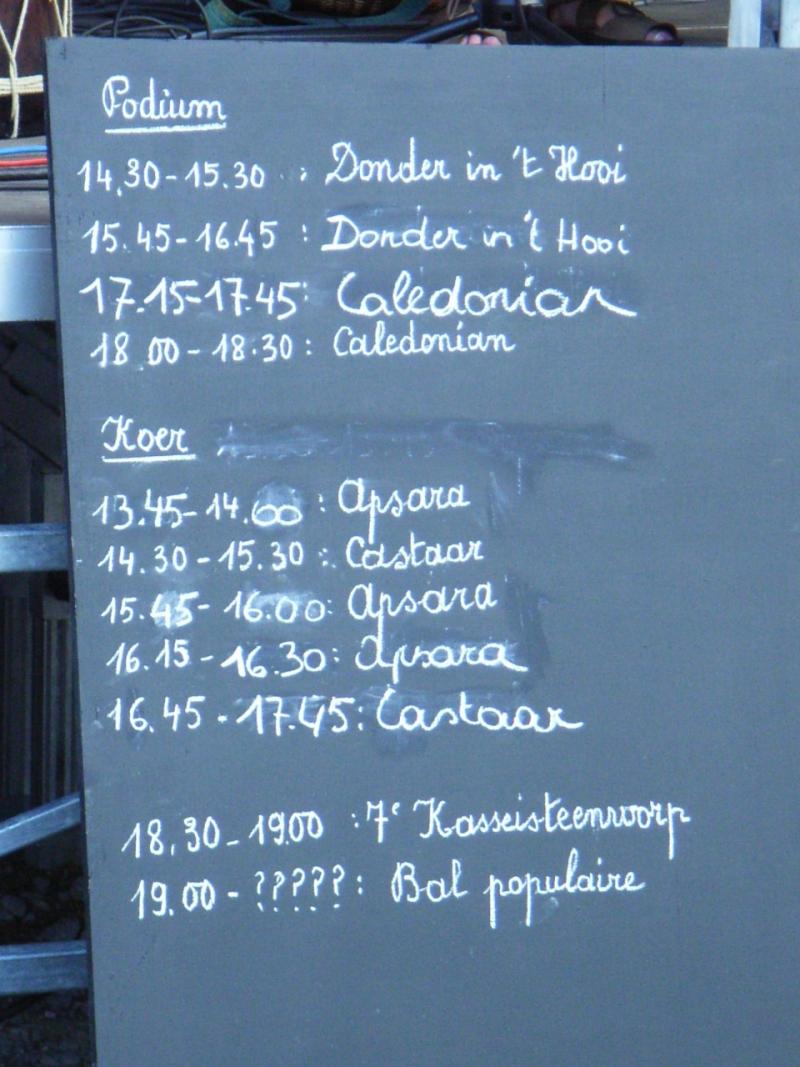 Podium
14.30-15.30 : Donder in 't Hooi
15.45-16.45 : Donder in 't Hooi
17.15-17.45: Caledonian
18.00-18.30: Caledonian
Koer
13.45-14.00 : Apsara
14.30-15.30 : Castaar
15.45-16.00: Apsara
16.15-16.30: Apsara
16.45-17.45: Castaar
18.30-19.00 : 7e Kasseisteenworp
19.00-?????: Bal populaire